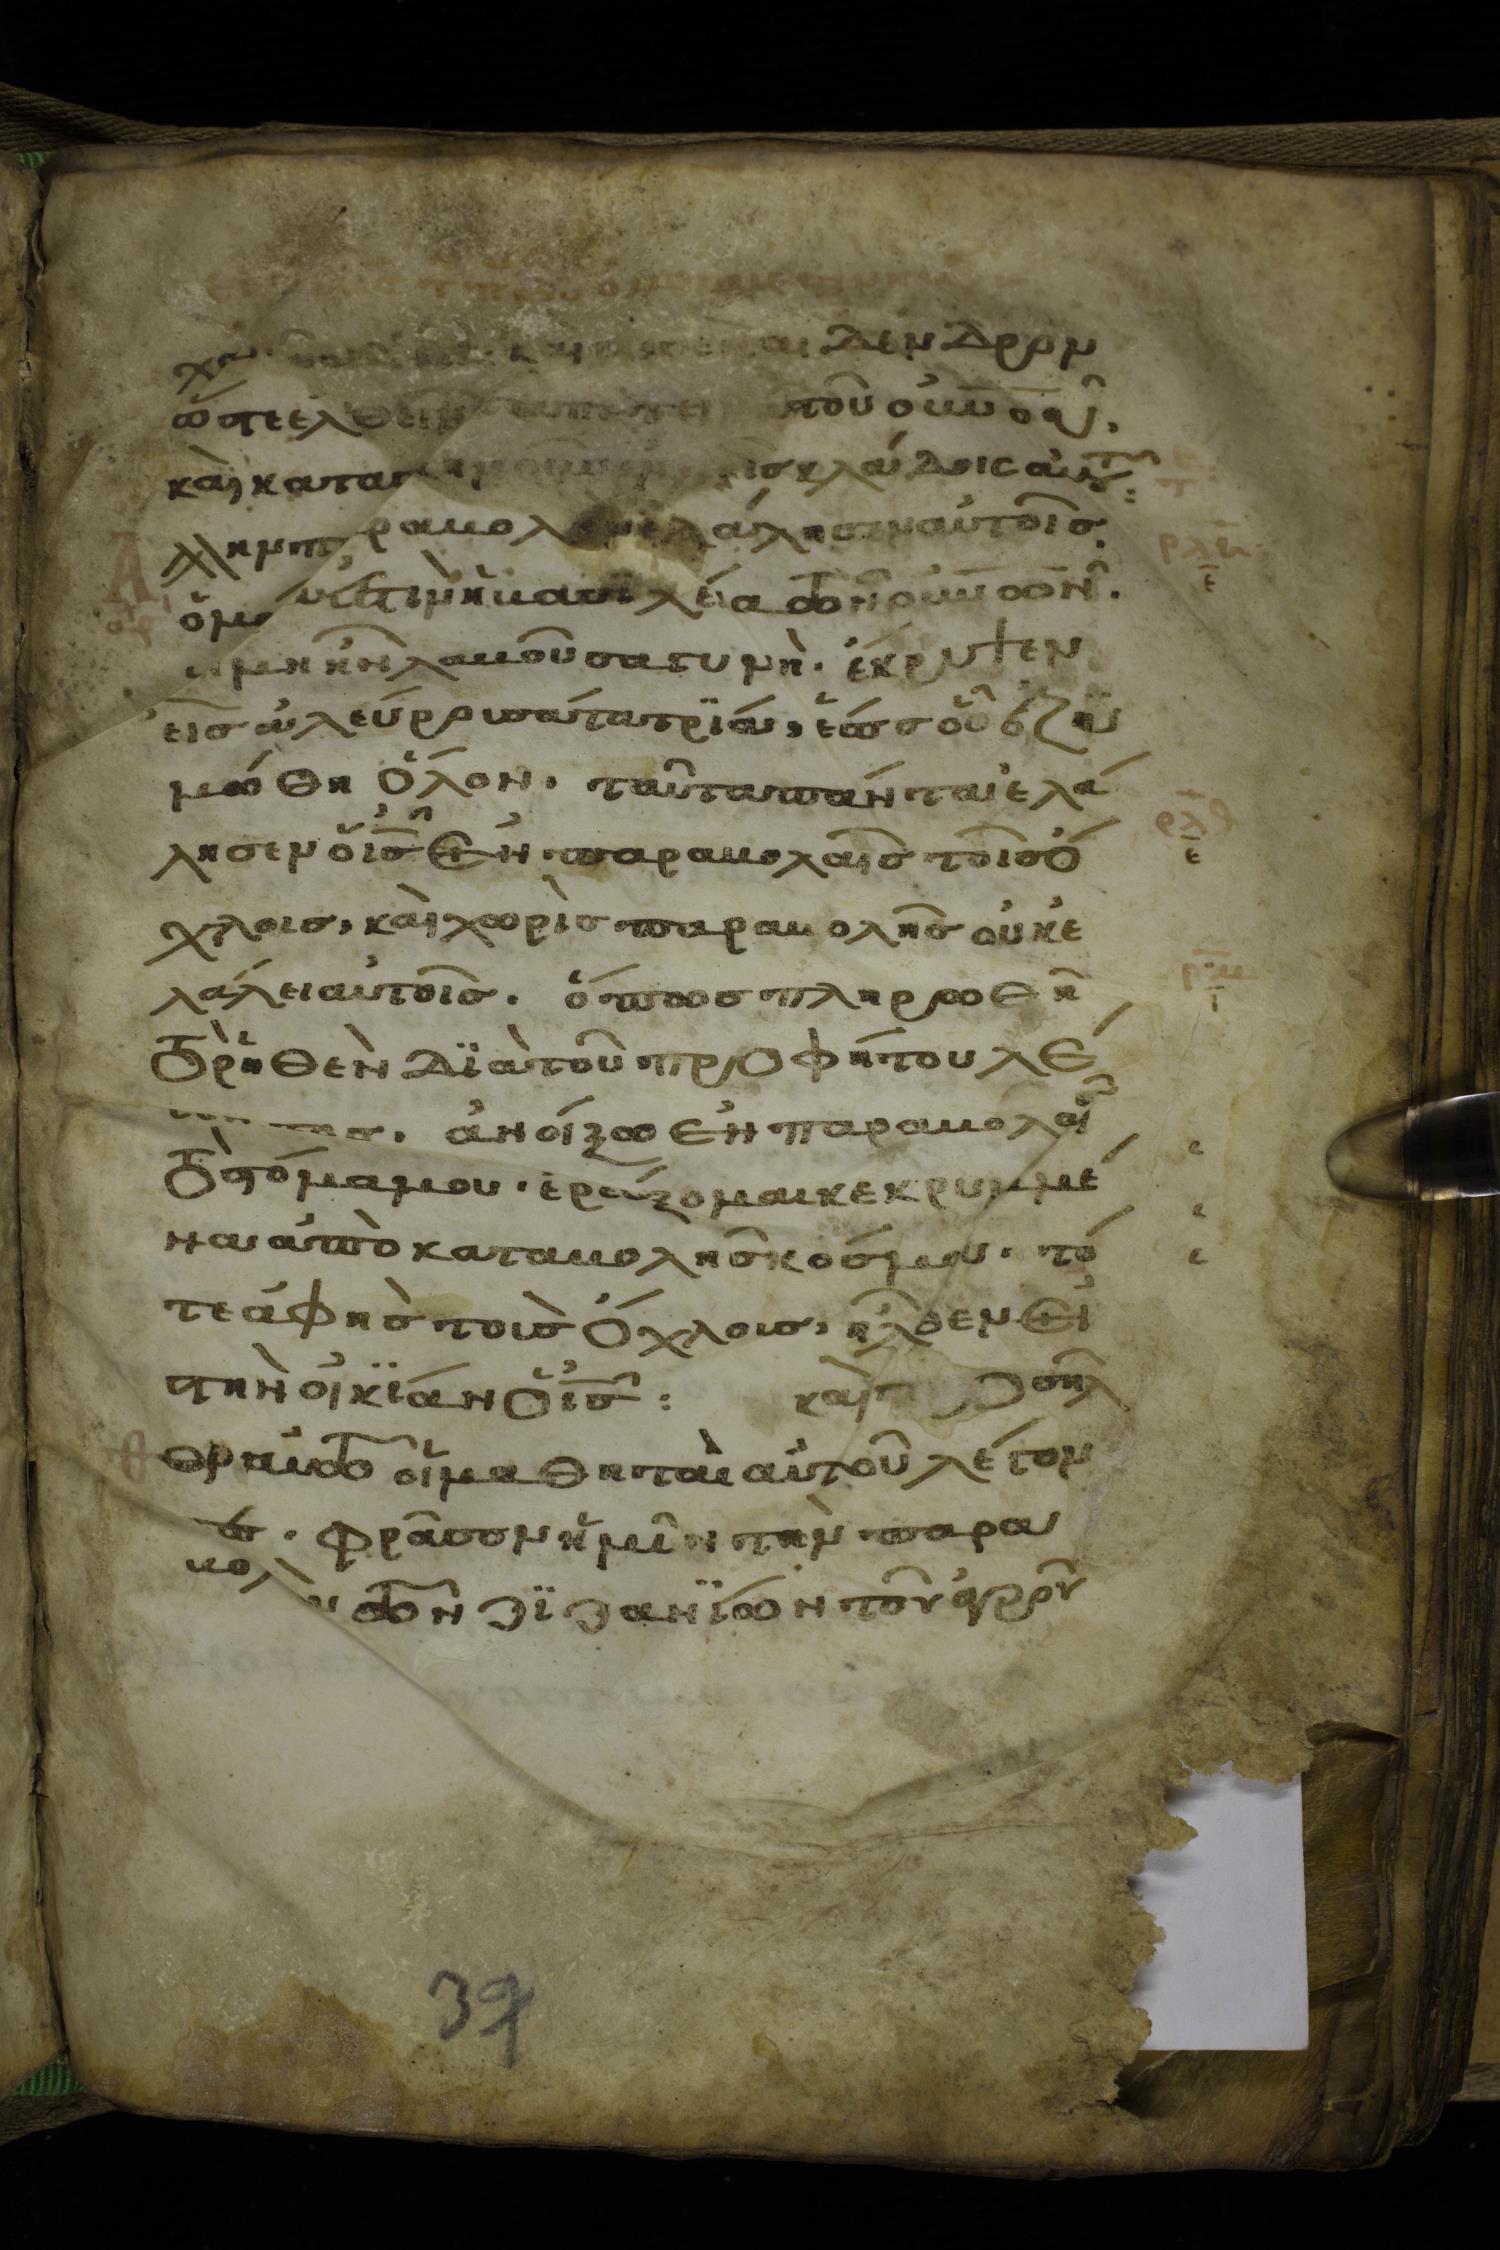 δένδρον
ὥστε ἐλθεῖν τοῦ οὐνοῦ,
καὶ κατα κλάδοις αὐτοῦ:
Ἄλλην παραβολὴν ἐλάλησεν αὐτοῖς.
ὁμοία ἐστὶν ἡ βασιλεία τῶν οὐνῶν.
ζύμη ἣν λαβοῦσα γυνὴ. ἔκρυψεν
εἰς ἀλεύρου σάτα τρία, ἕως οὗ ἐζυ
μώθη ὅλον. ταῦτα πάντα ἐλά
λησεν ὁ ις ἐν παραβολαῖς τοῖς ὄ
χλοις, καὶ χωρὶς παραβολῆς οὐκ ἐ
λάλει αὐτοῖς. ὅπως πληρωθῆ
τὸ ῥηθὲν διὰ τοῦ προφήτου λέ
γοντος. ἀνοίξω ἐν παραβολαῖς
τὸ στόμα μου. ἐρεύξομαι κεκρυμμέ
να ἀπὸ καταβολῆς κόσμου. τό
τε ἀφεὶς τοὺς ὄχλους, ἦλθεν εἰς
τὴν οἰκίαν ὁ ις: καὶ προσῆλ
θον αὐτῶ οἱ μαθηταὶ αὐτοῦ λέγον
τες. φράσον ἡμῖν τὴν παρα
βολὴν τῶν ζιζανίων τοῦ ἀγροῦ
39